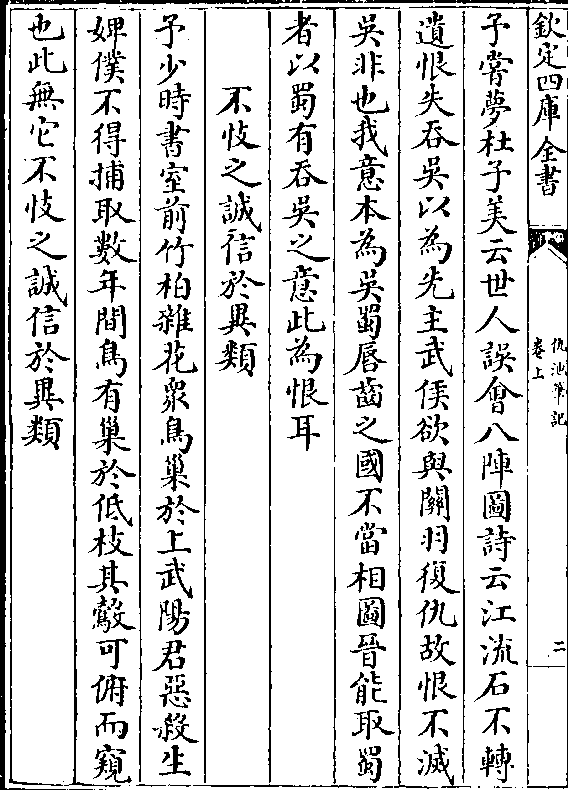 欽定四庫全書
仇池筆記
卷上
二
予嘗夢杜子美云世人誤會八陣圖詩云江流石不轉
遺恨失吞吳以為先主武侯欲與關羽復仇故恨不滅
吳非也我意本為吳蜀唇齒之國不當相圖晉能取蜀
者以蜀有吞吳之意此為恨耳
不忮之誠信於異類
予少時書室前竹柏雜花衆鳥巢於上武陽君惡殺生
婢僕不得捕取數年間鳥有巢於低枝其鷇可俯而窺
也此無它不忮之誠信於異類